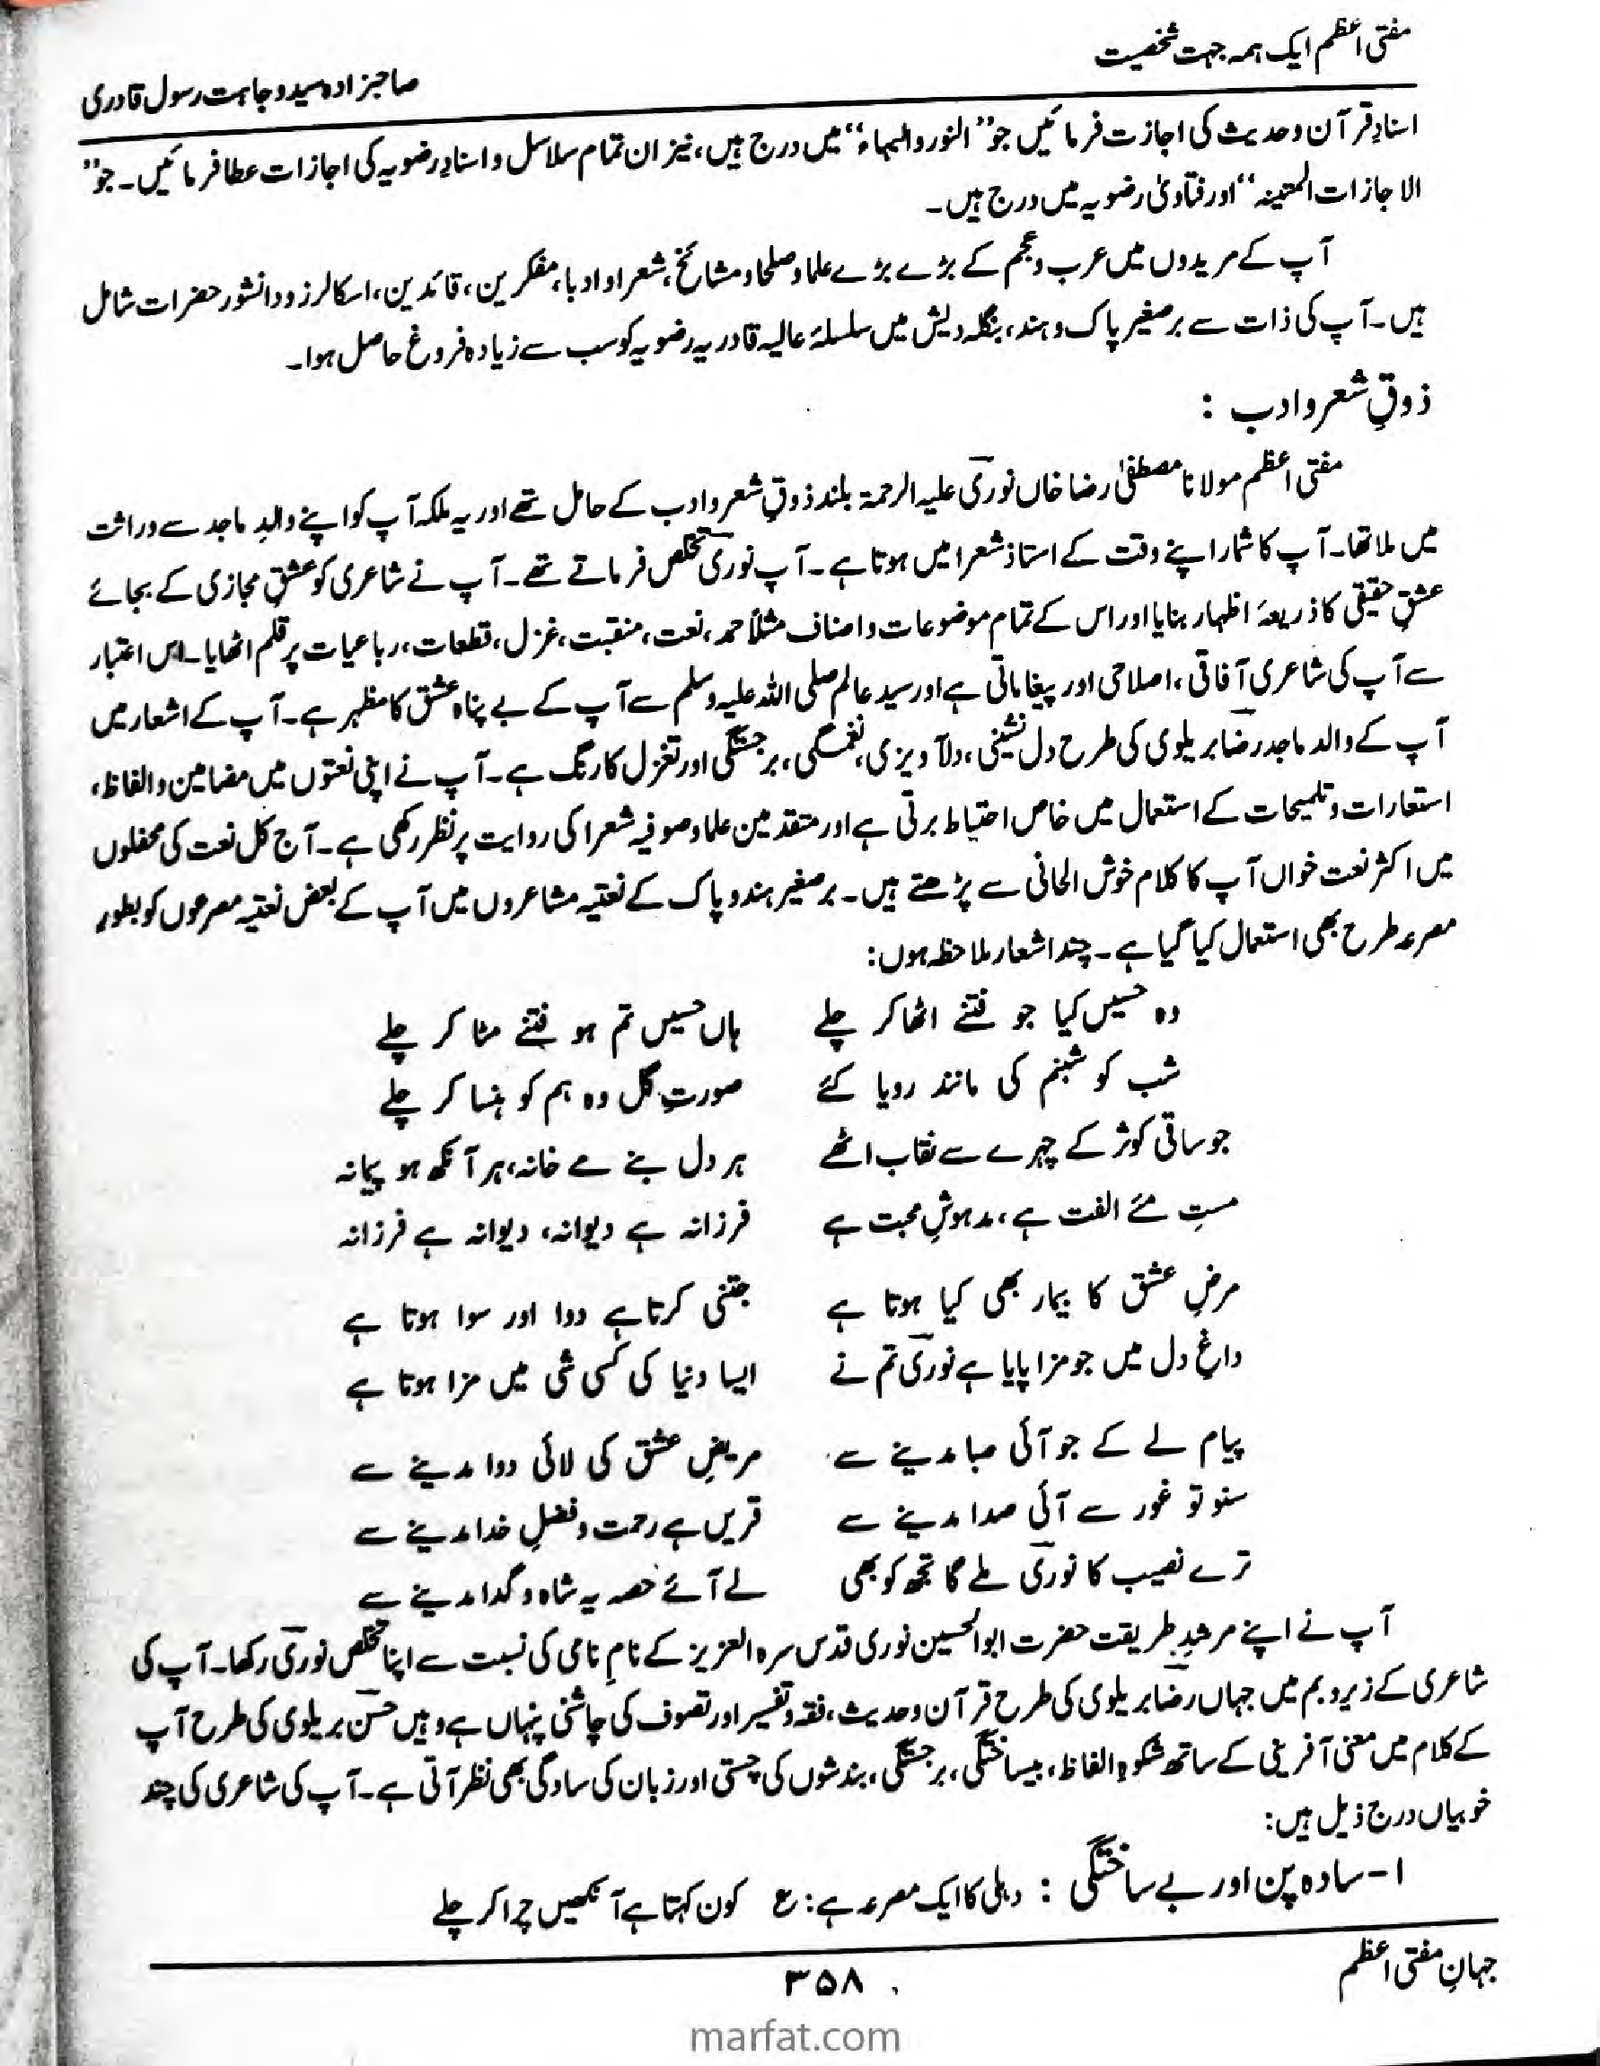 مفتی اعظم ایک ہمہ جہت شخصیت
صاحبزادہ سید وجاہت رسول قادری
اسنادِ قرآن و حدیث کی اجازت فرمائیں جو ”النور والبہاء“ میں درج ہیں، نیز ان تمام سلاسل و اسنادِ رضویہ کی اجازات عطا فرمائیں۔ جو ”
الاجازات المتینہ“ اور فتاویٰ رضویہ میں درج ہیں۔
آپ کے مریدوں میں عرب و عجم کے بڑے بڑے علما و صلحا و مشائخ، شعرا و ادبا، مفکرین، قائدین، اسکالرز و دانشور حضرات شامل
ہیں۔ آپ کی ذات سے برصغیر پاک و ہند، بنگلہ دیش میں سلسلۂ عالیہ قادریہ رضویہ کو سب سے زیادہ فروغ حاصل ہوا۔
ذوقِ شعر و ادب :
مفتی اعظم مولانا مصطفیٰ رضا خاں نوریؔ علیہ الرحمۃ بلند ذوقِ شعر و ادب کے حامل تھے اور یہ ملکہ آپ کو اپنے والدِ ماجد سے وراثت
میں ملا تھا۔ آپ کا شمار اپنے وقت کے استاذ شعرا میں ہوتا ہے۔ آپ نوریؔ تخلص فرماتے تھے۔ آپ نے شاعری کو عشقِ مجازی کے بجائے
عشقِ حقیقی کا ذریعۂ اظہار بنایا اور اس کے تمام موضوعات و اصناف مثلاً حمد، نعت، منقبت، غزل، قطعات، رباعیات پر قلم اٹھایا۔ اس اعتبار
سے آپ کی شاعری آفاقی، اصلاحی اور پیغاماتی ہے اور سید عالم صلی اللہ علیہ وسلم سے آپ کے بے پناہ عشق کا مظہر ہے۔ آپ کے اشعار میں
آپ کے والد ماجد رضاؔ بریلوی کی طرح دل نشینی، دلآویزی، نغمگی، برجستگی اور تغزل کا رنگ ہے۔ آپ نے اپنی نعتوں میں مضامین و الفاظ،
استعارات و تلمیحات کے استعمال میں خاص احتیاط برتی ہے اور متقدمین علما و صوفیہ شعرا کی روایت پر نظر رکھی ہے۔ آج کل نعت کی محفلوں
میں اکثر نعت خواں آپ کا کلام خوش الحانی سے پڑھتے ہیں۔ برصغیر ہند و پاک کے نعتیہ مشاعروں میں آپ کے بعض نعتیہ مصرعوں کو بطور
مصرعہ طرح بھی استعمال کیا گیا ہے۔ چند اشعار ملاحظہ ہوں:
وہ حسیں کیا جو فتنے اٹھا کر چلے ہاں حسیں تم ہو فتنے مٹا کر چلے
شب کو شبنم کی مانند رویا کئے صورتِ گل وہ ہم کو ہنسا کر چلے
جو ساقی کوثر کے چہرے سے نقاب اٹھے ہر دل بنے مے خانہ، ہر آنکھ ہو پیمانہ
مستِ مئے الفت ہے، مدہوشِ محبت ہے فرزانہ ہے دیوانہ، دیوانہ ہے فرزانہ
مرضِ عشق کا بیمار بھی کیا ہوتا ہے جتنی کرتا ہے دوا اور سوا ہوتا ہے
داغِ دل میں جو مزا پایا ہے نوریؔ تم نے ایسا دنیا کی کسی شی میں مزا ہوتا ہے
پیام لے کے جو آئی صبا مدینے سے مریضِ عشق کی لائی دوا مدینے سے
سنو تو غور سے آئی صدا مدینے سے قریں ہے رحمت و فضلِ خدا مدینے سے
ترے نصیب کا نوریؔ ملے گا تجھ کو بھی لے آئے حصہ یہ شاہ و گدا مدینے سے
آپ نے اپنے مرشدِ طریقت حضرت ابوالحسین نوری قدس سرہ العزیز کے نامِ نامی کی نسبت سے اپنا تخلص نوریؔ رکھا۔ آپ کی
شاعری کے زیر و بم میں جہاں رضاؔ بریلوی کی طرح قرآن و حدیث، فقہ و تفسیر اور تصوف کی چاشنی پنہاں ہے وہیں حسنؔ بریلوی کی طرح آپ
کے کلام میں معنی آفرینی کے ساتھ شکوہِ الفاظ، بیساختگی، برجستگی، بندشوں کی چستی اور زبان کی سادگی بھی نظر آتی ہے۔ آپ کی شاعری کی چند
خوبیاں درج ذیل ہیں:
۱- سادہ پن اور بے ساختگی : دہلی کا ایک مصرعہ ہے: ع کون کہتا ہے آنکھیں چرا کر چلے
جہانِ مفتی اعظم
۳۵۸
marfat.com